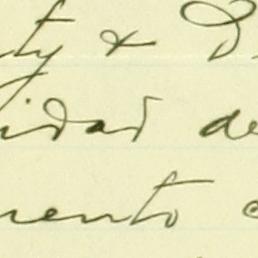 ty & D
idad de
mento